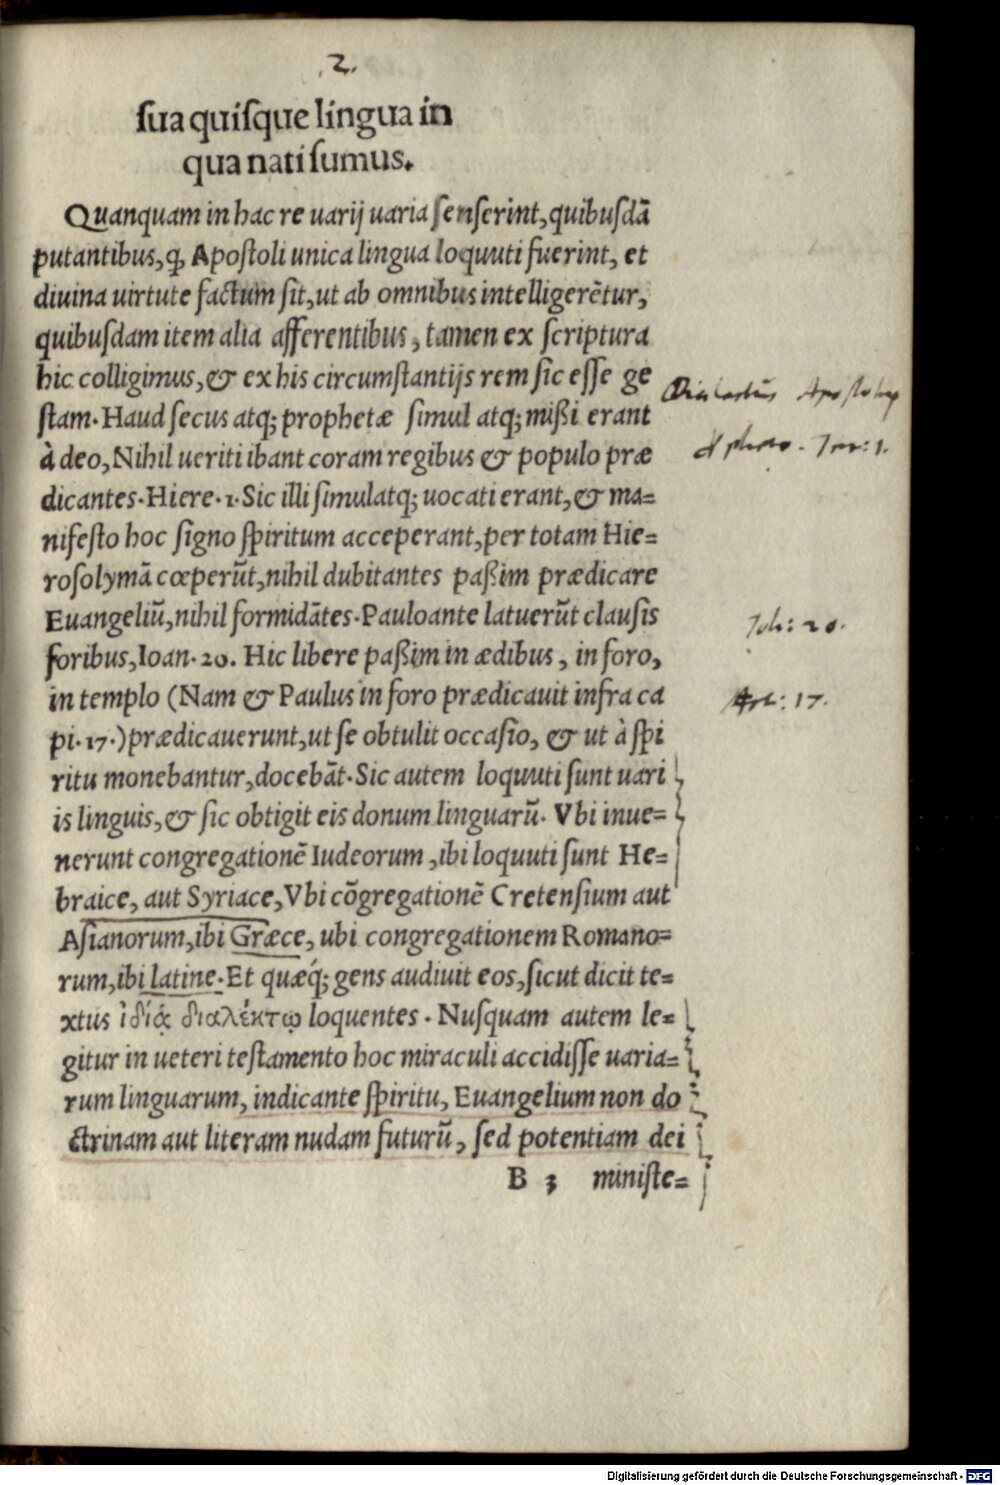 .2.
sua quisque lingua in
qua nati sumus.
Quanquam in hac re uarij uaria senserint, quibusdã
putantibus, ꝙ Apostoli unica lingua loquuti fuerint, et
diuina uirtute factum sit, ut ab omnibus intelligerẽtur,
quibusdam item alia afferentibus, tamen ex scriptura
hic colligimus, & ex his circumstantijs rem sic esse ge
stam. Haud secus atq; prophetæ simul atq; mißi erant
à deo, Nihil ueriti ibant coram regibus & populo præ
dicantes. Hiere. 1. Sic illi simulatq; uocati erant, & ma=
nifesto hoc signo spiritum acceperant, per totam Hie=
rosolymã cœperũt, nihil dubitantes paßim prædicare
Euangeliũ, nihil formidãtes. Pauloante latuerũt clausis
foribus, Ioan. 20. Hic libere paßim in ædibus, in foro,
in templo (Nam & Paulus in foro prædicauit infra ca
pi. 17.) prædicauerunt, ut se obtulit occasio, & ut à spi
ritu monebantur, docebãt. Sic autem loquuti sunt uari
is linguis, & sic obtigit eis donum linguarũ. Vbi inue=
nerunt congregationẽ Iudeorum, ibi loquuti sunt He=
braice, aut Syriace, Vbi cõgregationẽ Cretensium aut
Asianorum, ibi Græce, ubi congregationem Romano=
rum, ibi latine. Et quæq́; gens audiuit eos, sicut dicit te=
xtus ἰδίᾳ διαλέκτῳ loquentes. Nusquam autem le=
gitur in ueteri testamento hoc miraculi accidisse uaria=
rum linguarum, indicante spiritu, Euangelium non do
ctrinam aut literam nudam futurũ, sed potentiam dei
B 3 ministe=
Ier: 1.
Joh: 20.
Act: 17.
Digitalisierung gefördert durch die Deutsche Forschungsgemeinschaft - DFG